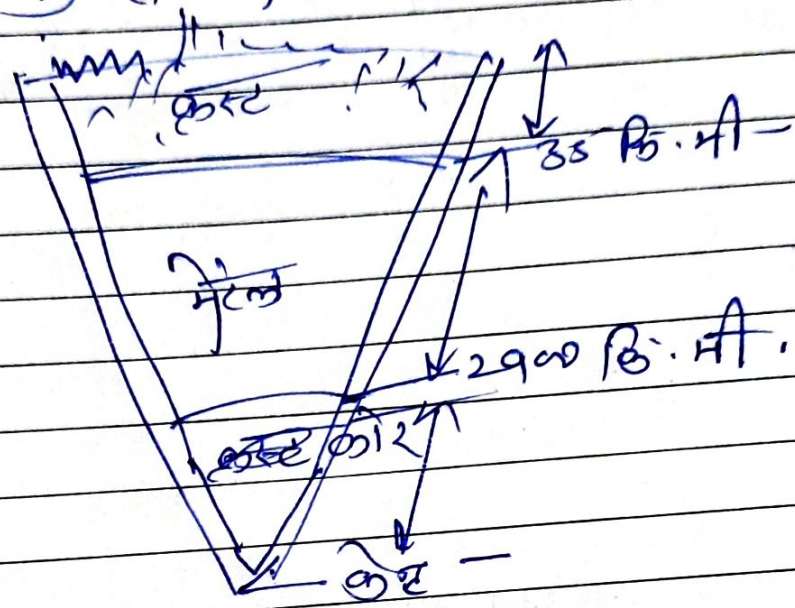 क्रस्ट
35 कि.मी –
मेंटल
2900 कि.मी.
कोर
केन्द्र –